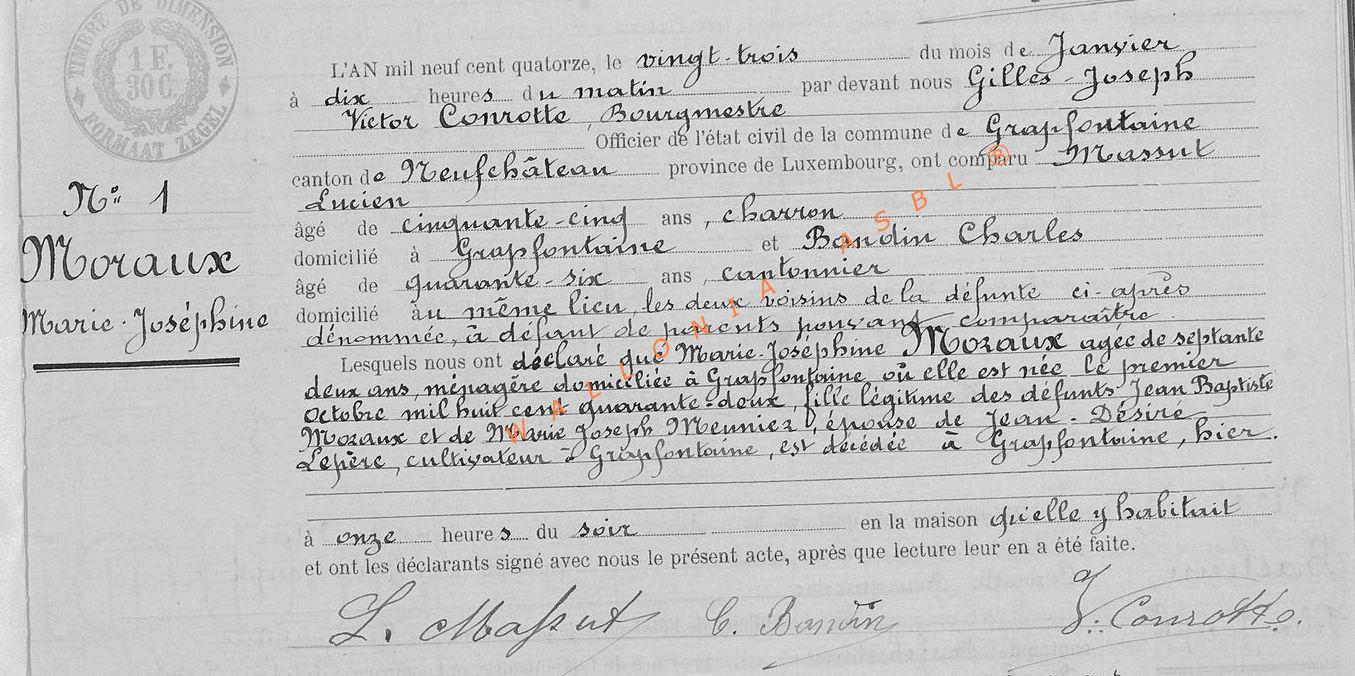 TIMBRE DE DIMENSION
1 F.
30 C.
FORMAAT ZEGEL
N° 1
Moraux
Marie-Joséphine
L'AN mil neuf cent quatorze, le vingt-trois du mois de Janvier
à dix heures du matin par devant nous Gilles-Joseph
Victor Conrotte, Bourgmestre
Officier de l'état civil de la commune de Grapfontaine
canton de Neufchâteau province de Luxembourg, ont comparu Massut
Lucien
âgé de cinquante-cinq ans, charron
domicilié à Grapfontaine et Baudin Charles
âgé de quarante-six ans, cantonnier
domicilié au même lieu, les deux voisins de la défunte ci-après
dénommée, à défaut de parents pouvant comparaître.
Lesquels nous ont déclaré que Marie-Joséphine Moraux agée de septante
deux ans, ménagère domiciliée à Grapfontaine où elle est née le premier
Octobre mil huit cent quarante-deux, fille légitime des défunts Jean Baptiste
Moraux et de Marie Joseph Meunier, épouse de Jean-Désiré
Lepère, cultivateur à Grapfontaine, est décédée à Grapfontaine, hier.
à onze heures du soir en la maison qu'elle y habitait
et ont les déclarants signé avec nous le présent acte, après que lecture leur en a été faite.
L. Massut C. Baudin V. Conrotte.
WALLONIA ASBL ®